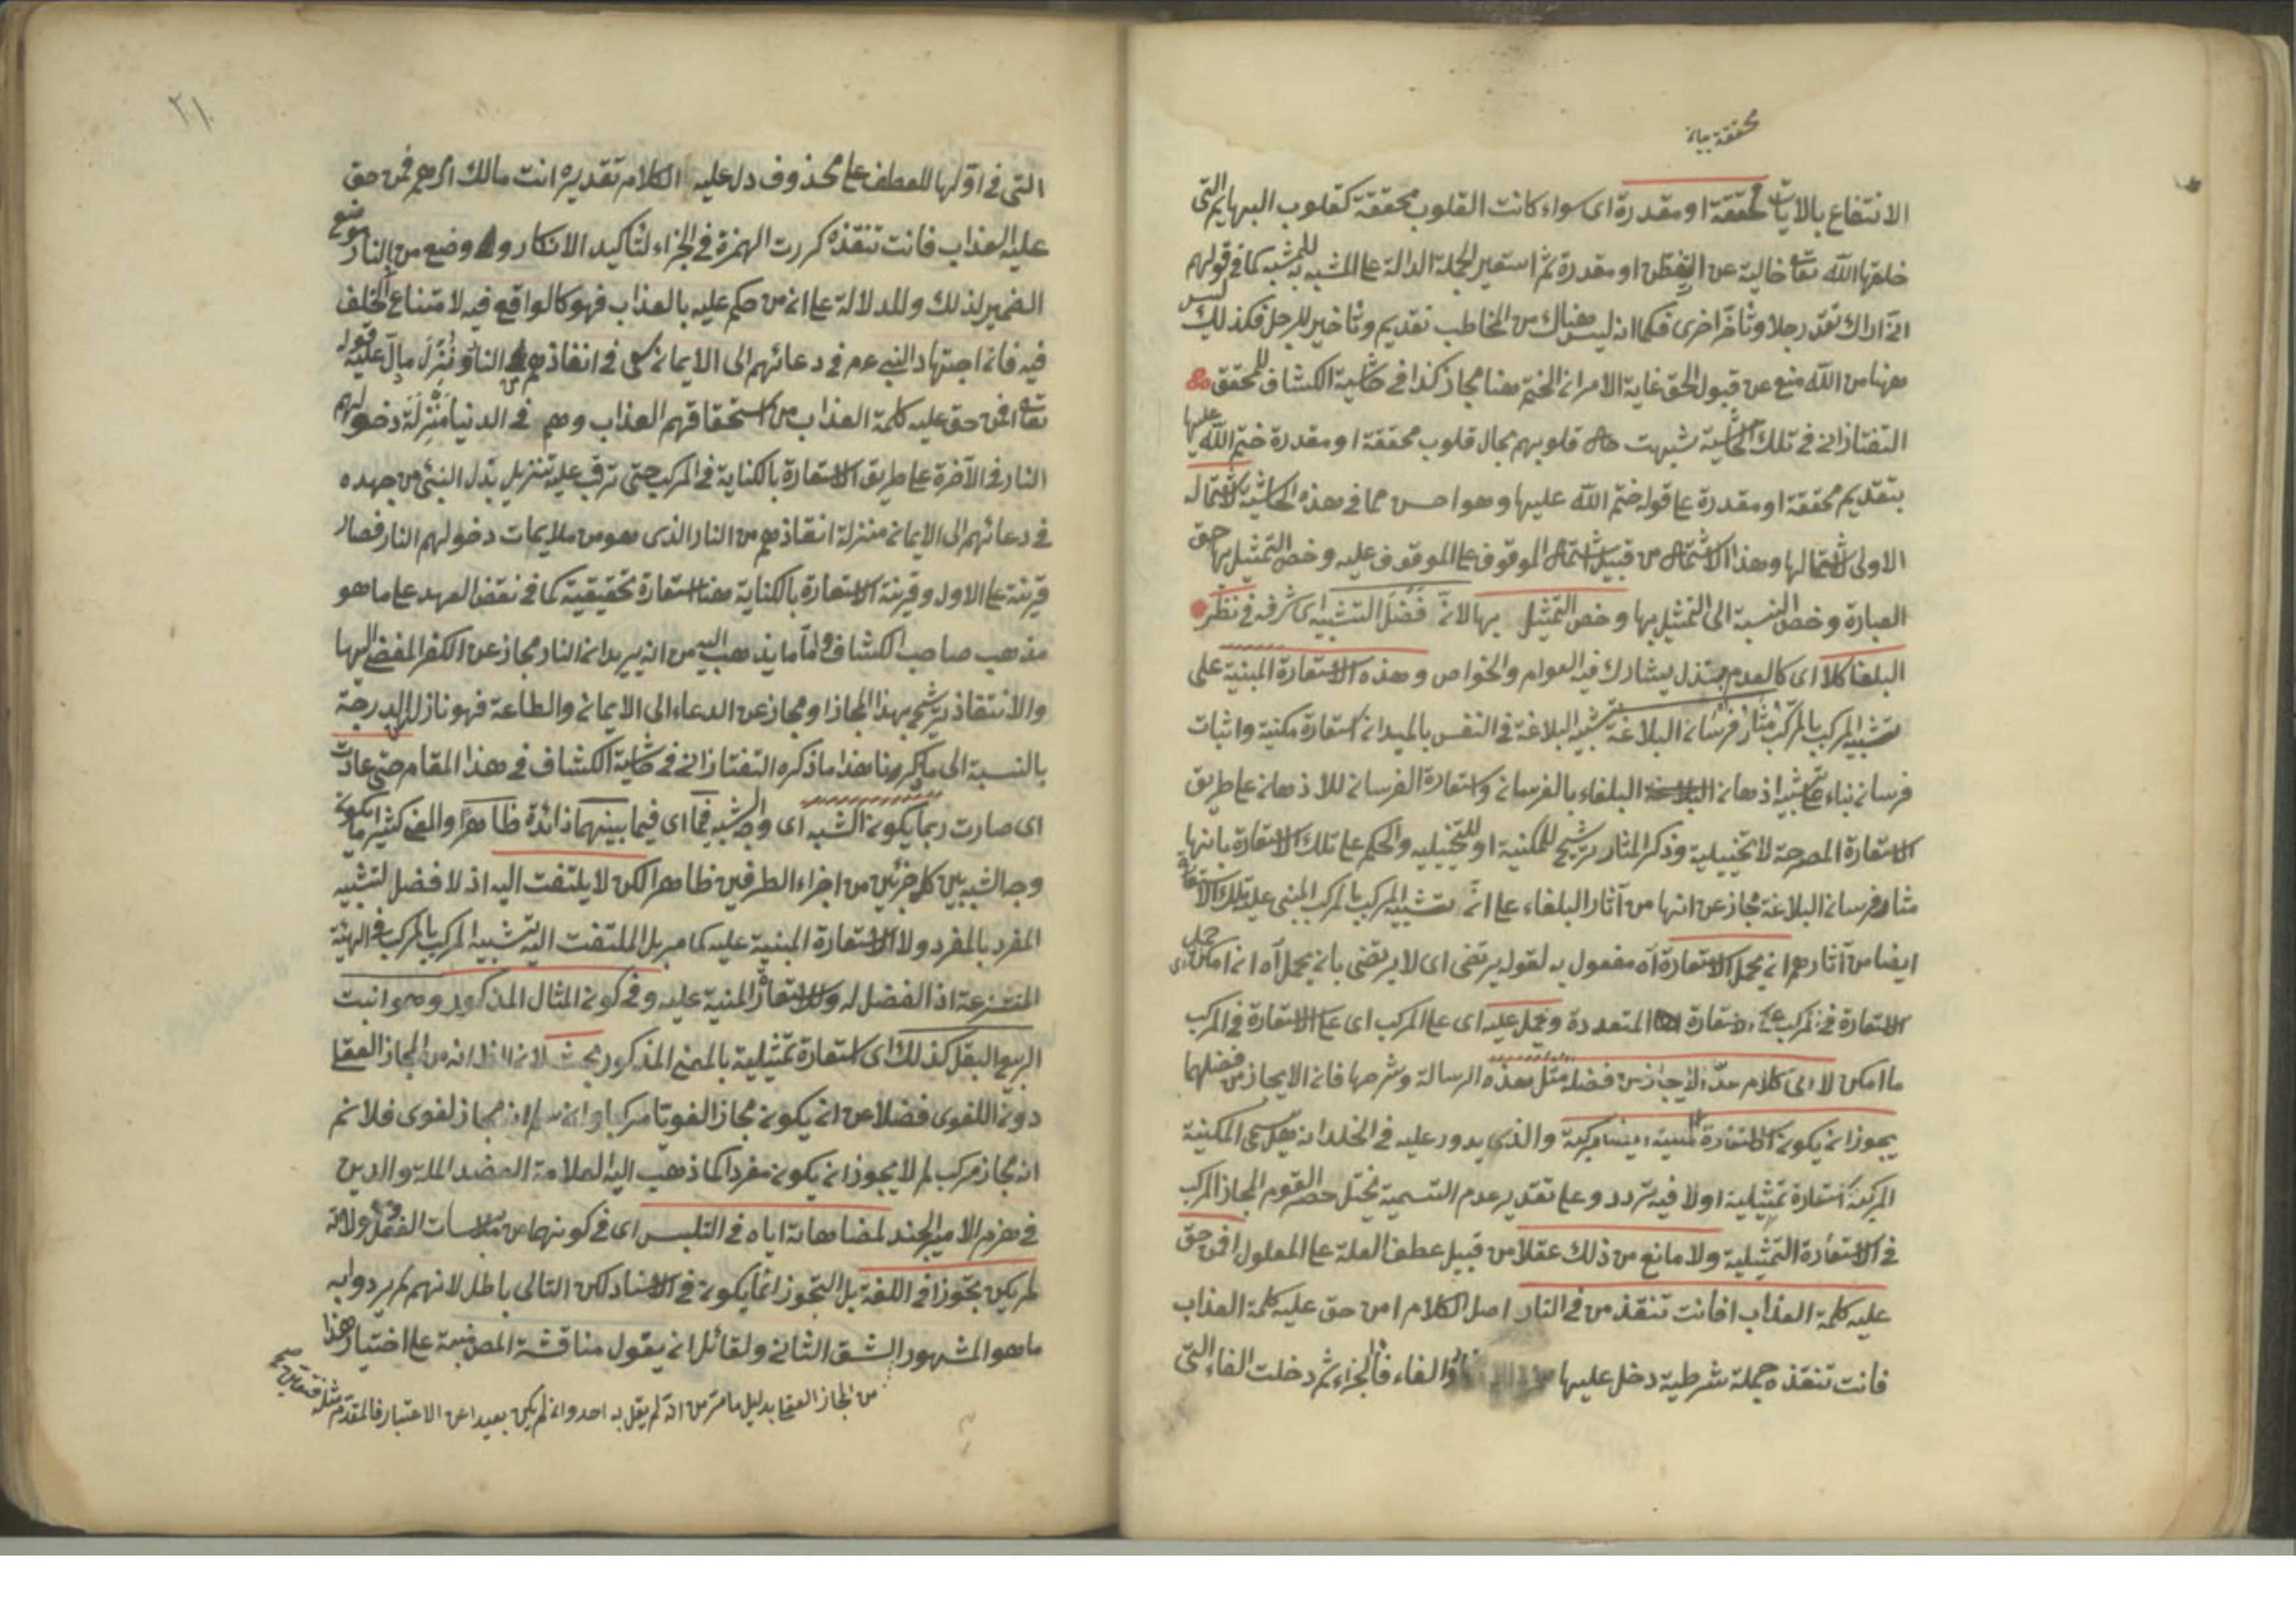 محققة بيان
الانتفاع بالايات محققة او مقدرة اى سواء كانت القلوب محققة كقلوب البهايم التى
خلقها الله تعا خالية عن التفطن او مقدرة ثم استعير الجملة الدالة على المشبه به للمشبه كما فى قولهم
انى اراك تقدم رجلا وتأخر اخرى فكما انه ليس هناك من المخاطب تقديم وتأخير للرجل فكذلك ليس
ههنا من الله منع عن قبول الحق غاية الامر ان الختم هنا مجاز كذا فى حاشية الكشاف للمحقق
التفتازانى فى تلك الحاشية شبهت حال قلوبهم بحال قلوب محققة او مقدرة ختم الله عليها
بتقديم محققة او مقدرة على قوله ختم الله عليها وهو احسن مما فى هذه الحاشية لاشتمال
الاولى لاشتمالها وهذا الاشتمال من قبيل اشتمال الموقوف على الموقوف عليه وخص التمثيل بها حق
العبارة وخص النسبة الى التمثيل بها وخص التمثيل بها لان فضل التشبيه اى شرفه فى نظر
البلغا كلا اى كالعدم مبتذل يشارك فيه العوام والخواص وهذه الاستعارة المبنية على
تشبيه المركب بالمركب مثار فرسان البلاغة تشبيه البلاغة فى النفس بالميدان استعارة مكنية واثبات
فرسان بناء على تشبيه اذهان البلغاء بالفرسان واستعارة الفرسان للاذهان على طريق
الاستعارة المصرحة لا تخييلية وذكر المثار ترشيح للمكنية او للتخييلية والحكم على تلك الاستعارة بانها
مثار فرسان البلاغة مجاز عن انها من آثار البلغاء على ان تشبيه المركب بالمركب المبنى عليه تلك الاستعارة
ايضا من آثارهم ان يحمل الاستعارة آه مفعول به لقوله يرتضى اى لا يرتضى بان يحمل آه ان امكن حمل
الاستعارة فى المركب على استعارة المتعددة ويحمل عليه اى على المركب اى على الاستعارة فى المركب
ما امكن لا الى كلام من فضله مثل هذه الرسالة وشرحها فان الايجاز من فضلهما
يجوز ان يكون الاستعارة المكنية ايضا مركبة والذى يدور عليه فى الخلد انه هل يسمى المكنية
المركبة استعارة تمثيلية او لا فيه تردد وعلى تقدير عدم التسمية يختل حصر القوم المجاز المركب
فى الاستعارة التمثيلية ولا مانع من ذلك عقلا من قبيل عطف العلة على المعلول افمن حق
عليه كلمة العذاب افانت تنقذ من فى النار اصل الكلام امن حق عليه كلمة العذاب
فانت تنقذه جملة شرطية دخل عليها والفاء فاء الجزاء ثم دخلت الفاء التى
التى فى اولها للعطف على محذوف دل عليه الكلام تقديره انت مالك امرهم فمن حق
عليه العذاب فانت تنقذه كررت الهمزة فى الجزاء لتأكيد الانكار ووضع من فى النار موضع
الضمير لذلك وللدلالة على ان من حكم عليه بالعذاب فهو كالواقع فيه لامتناع الخلف
فيه فان اجتهاد النبى عم فى دعائهم الى الايمان سعى فى انقاذهم من النار نزل مادل عليه قوله
تعا افمن حق عليه كلمة العذاب من استحقاقهم العذاب وهم فى الدنيا منزلة دخولهم
النار فى الآخرة على طريق الاستعارة بالكناية فى المركب حتى ترتب عليه تنزيل بذل النبى من جهده
فى دعائهم الى الايمان منزلة انقاذهم من النار الذى هو من ملايمات دخولهم النار فصار
قرينة على الاول وقرينة الاستعارة بالكناية هنا استعارة تحقيقية كما فى نقض العهد على ما هو
مذهب صاحب الكشاف واما ما يذهب اليه من انه يريد ان النار مجاز عن الكفر المفضى اليها
والانقاذ ترشيح بهذا المجاز او مجاز عن الدعاء الى الايمان والطاعة فهو نازل الدرجة
بالنسبة الى ما ذكرنا هذا ما ذكره التفتازانى فى حاشية الكشاف فى هذا المقام حتى عادت
اى صارت ربما يكون الشبه اى وجه الشبه فيما اى فيما بينهما ذائدة ظاهرا والمعنى كثيرا ما يكون
وجه الشبه بين كل جزئين من اجزاء الطرفين ظاهرا لكن لا يلتفت اليه اذ لا فضل لتشبيه
المفرد بالمفرد ولا الاستعارة المبنية عليه كما مر بل الملتفت اليه تشبيه المركب بالمركب فى الهيئة
المنتزعة اذ الفضل له وللاستعارة المبنية عليه وفى كون المثال المذكور وهو انبت
الربيع البقل كذلك اى استعارة تمثيلية بالمعنى المذكور بحث لان الظ انه من المجاز العقلى
دون اللغوى فضلا عن ان يكون مجازا لغويا مركبا وان سلم انه مجاز لغوى فلا نم
انه مجاز مركب لم لا يجوز ان يكون مفردا كما ذهب اليه العلامة العضد الملة والدين
فى هزم الامير الجند لمضاهاته اياه فى التلبس اى فى كونهما من ملابسات الفعل
لم يكن تجوزا فى اللغة بل التجوز انما يكون فى الاسناد لكن التالى باطل لانهم لم يريدوا به
ما هو المشهور الشق الثانى ولقائل ان يقول مناقشة المص مبنية على اختيار هذا
من المجاز العقلى بدليل ما مر من انه لم يقل به احد وان لم يكن بعيدا عن الاعتبار فالمقدم مثله